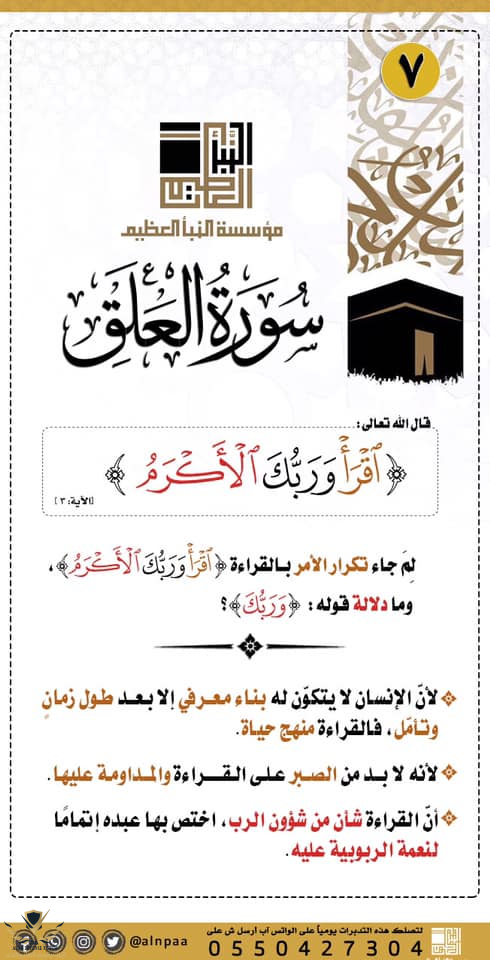 ٧
النبأ العظيم
مؤسسة النبأ العظيم
سُورَةُ العَلَقِ
قال الله تعالى:
﴿ ٱقْرَأْ وَرَبُّكَ ٱلْأَكْرَمُ ﴾
[الآية: ٣]
لِمَ جاء تكرار الأمر بالقراءة ﴿ٱقْرَأْ وَرَبُّكَ ٱلْأَكْرَمُ﴾،
وما دلالة قوله: ﴿وَرَبُّكَ﴾؟
لأنّ الإنسان لا يتكوّن له بناء معرفي إلا بعد طول زمانٍ
وتأمّل، فالقراءة منهج حياة.
لأنه لا بد من الصبر على القراءة والمداومة عليها.
أنّ القراءة شأن من شؤون الرب، اختص بها عبده إتمامًا
لنعمة الربوبية عليه.
لتصلك هذه التدبرات يومياً على الواتس آب ارسل ش على
@alnpaa
0550427304